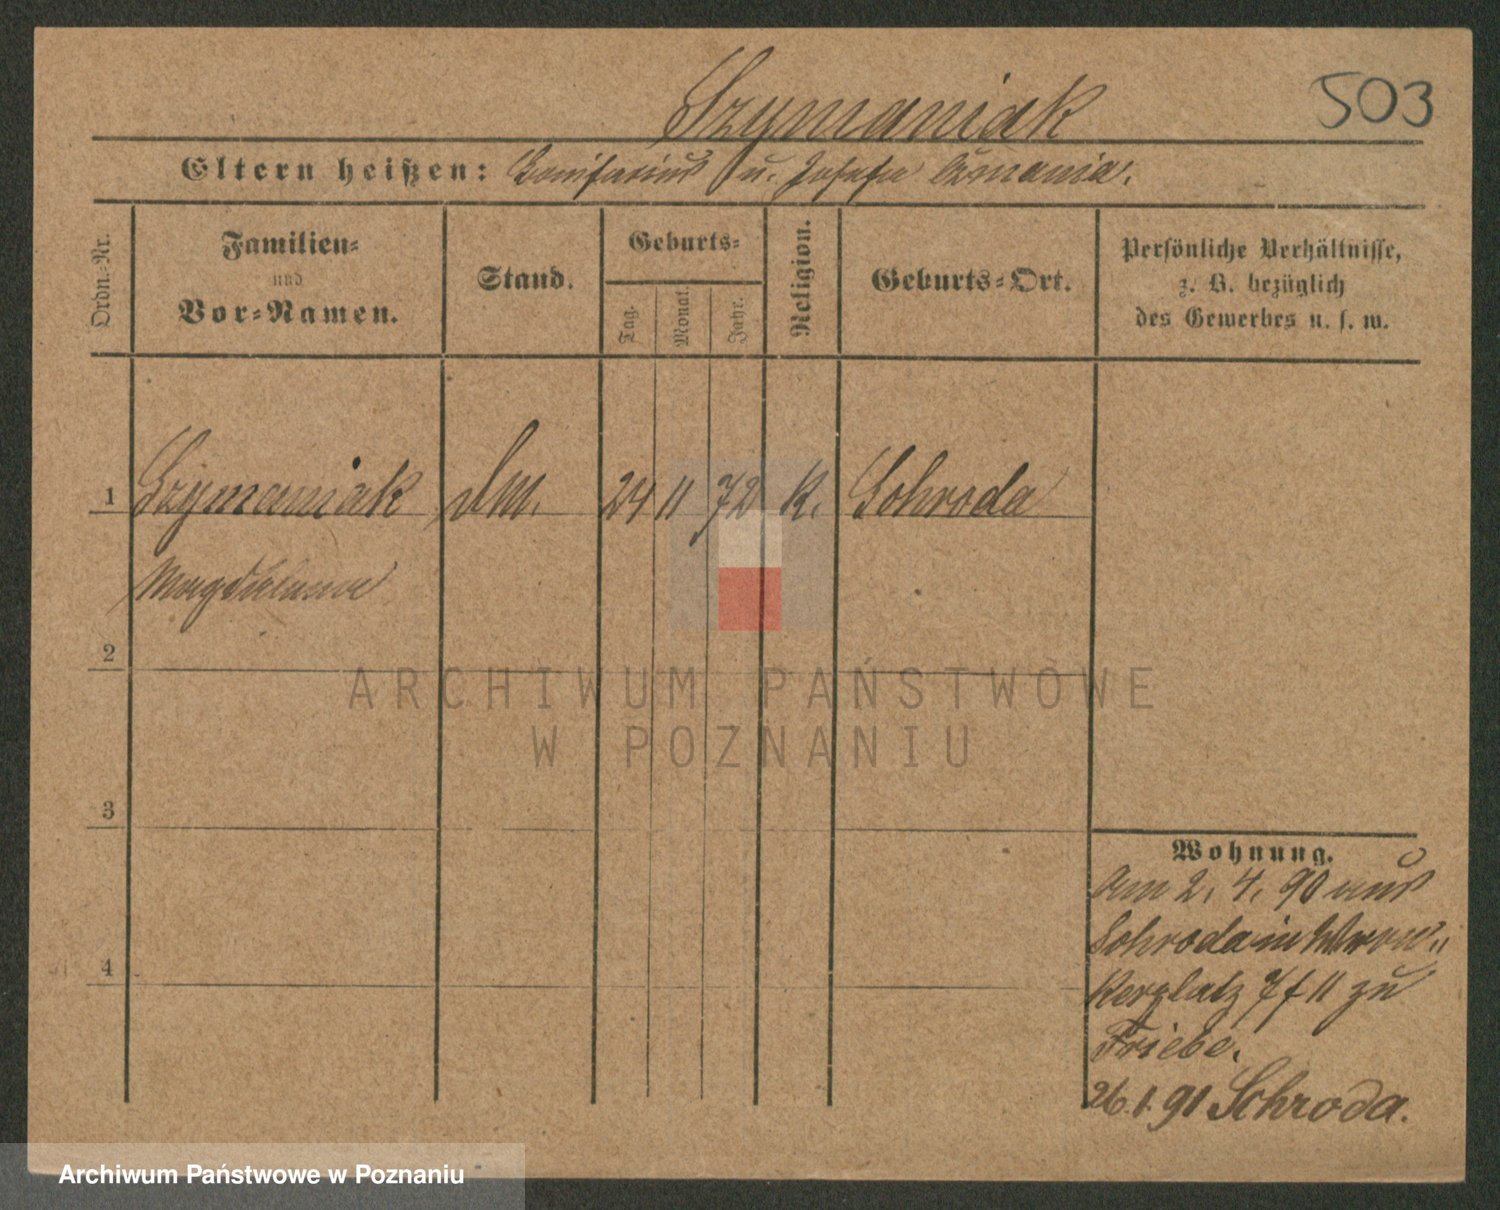 Szymaniak
503
Eltern heißen: Bonifacius u. Josefa
Ordn.-Nr.
Familien-
und
Vor-Namen.
Stand.
Geburts-
Tag.
Monat.
Jahr.
Religion.
Geburts-Ort.
Persönliche Verhältnisse,
z. B. bezüglich
des Gewerbes u. s. w.
1
Szymaniak
Dm.
24
11
72
K.
Schroda
Magdalena
2
3
4
Wohnung.
Am 2. 4. 90 aus
Schroda in Wron-
kerplatz 7 f 11 zu
Friebe.
26. 1. 91 Schroda.
ARCHIWUM PAŃSTWOWE
W POZNANIU
Archiwum Państwowe w Poznaniu